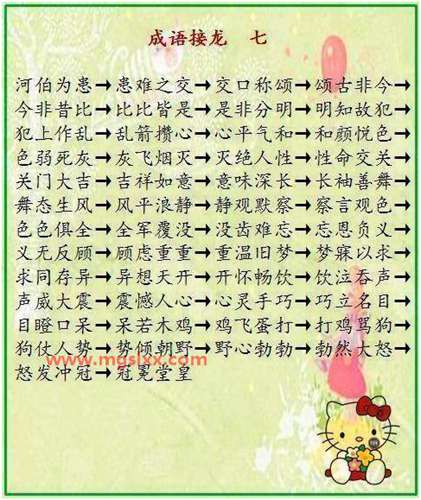 成语接龙 七
河伯为患→患难之交→交口称颂→颂古非今→
今非昔比→比比皆是→是非分明→明知故犯→
犯上作乱→乱箭攒心→心平气和→和颜悦色→
色弱死灰→灰飞烟灭→灭绝人性→性命交关→
关门大吉→吉祥如意→意味深长→长袖善舞→
舞态生风→风平浪静→静观默察→察言观色→
色色俱全→全军覆没→没齿难忘→忘恩负义→
义无反顾→顾虑重重→重温旧梦→梦寐以求→
求同存异→异想天开→开怀畅饮→饮泣吞声→
声威大震→震憾人心→心灵手巧→巧立名目→
目瞪口呆→呆若木鸡→鸡飞蛋打→打鸡骂狗→
狗仗人势→势倾朝野→野心勃勃→勃然大怒→
www.mgslxx.com
怒发冲冠→冠冕堂皇